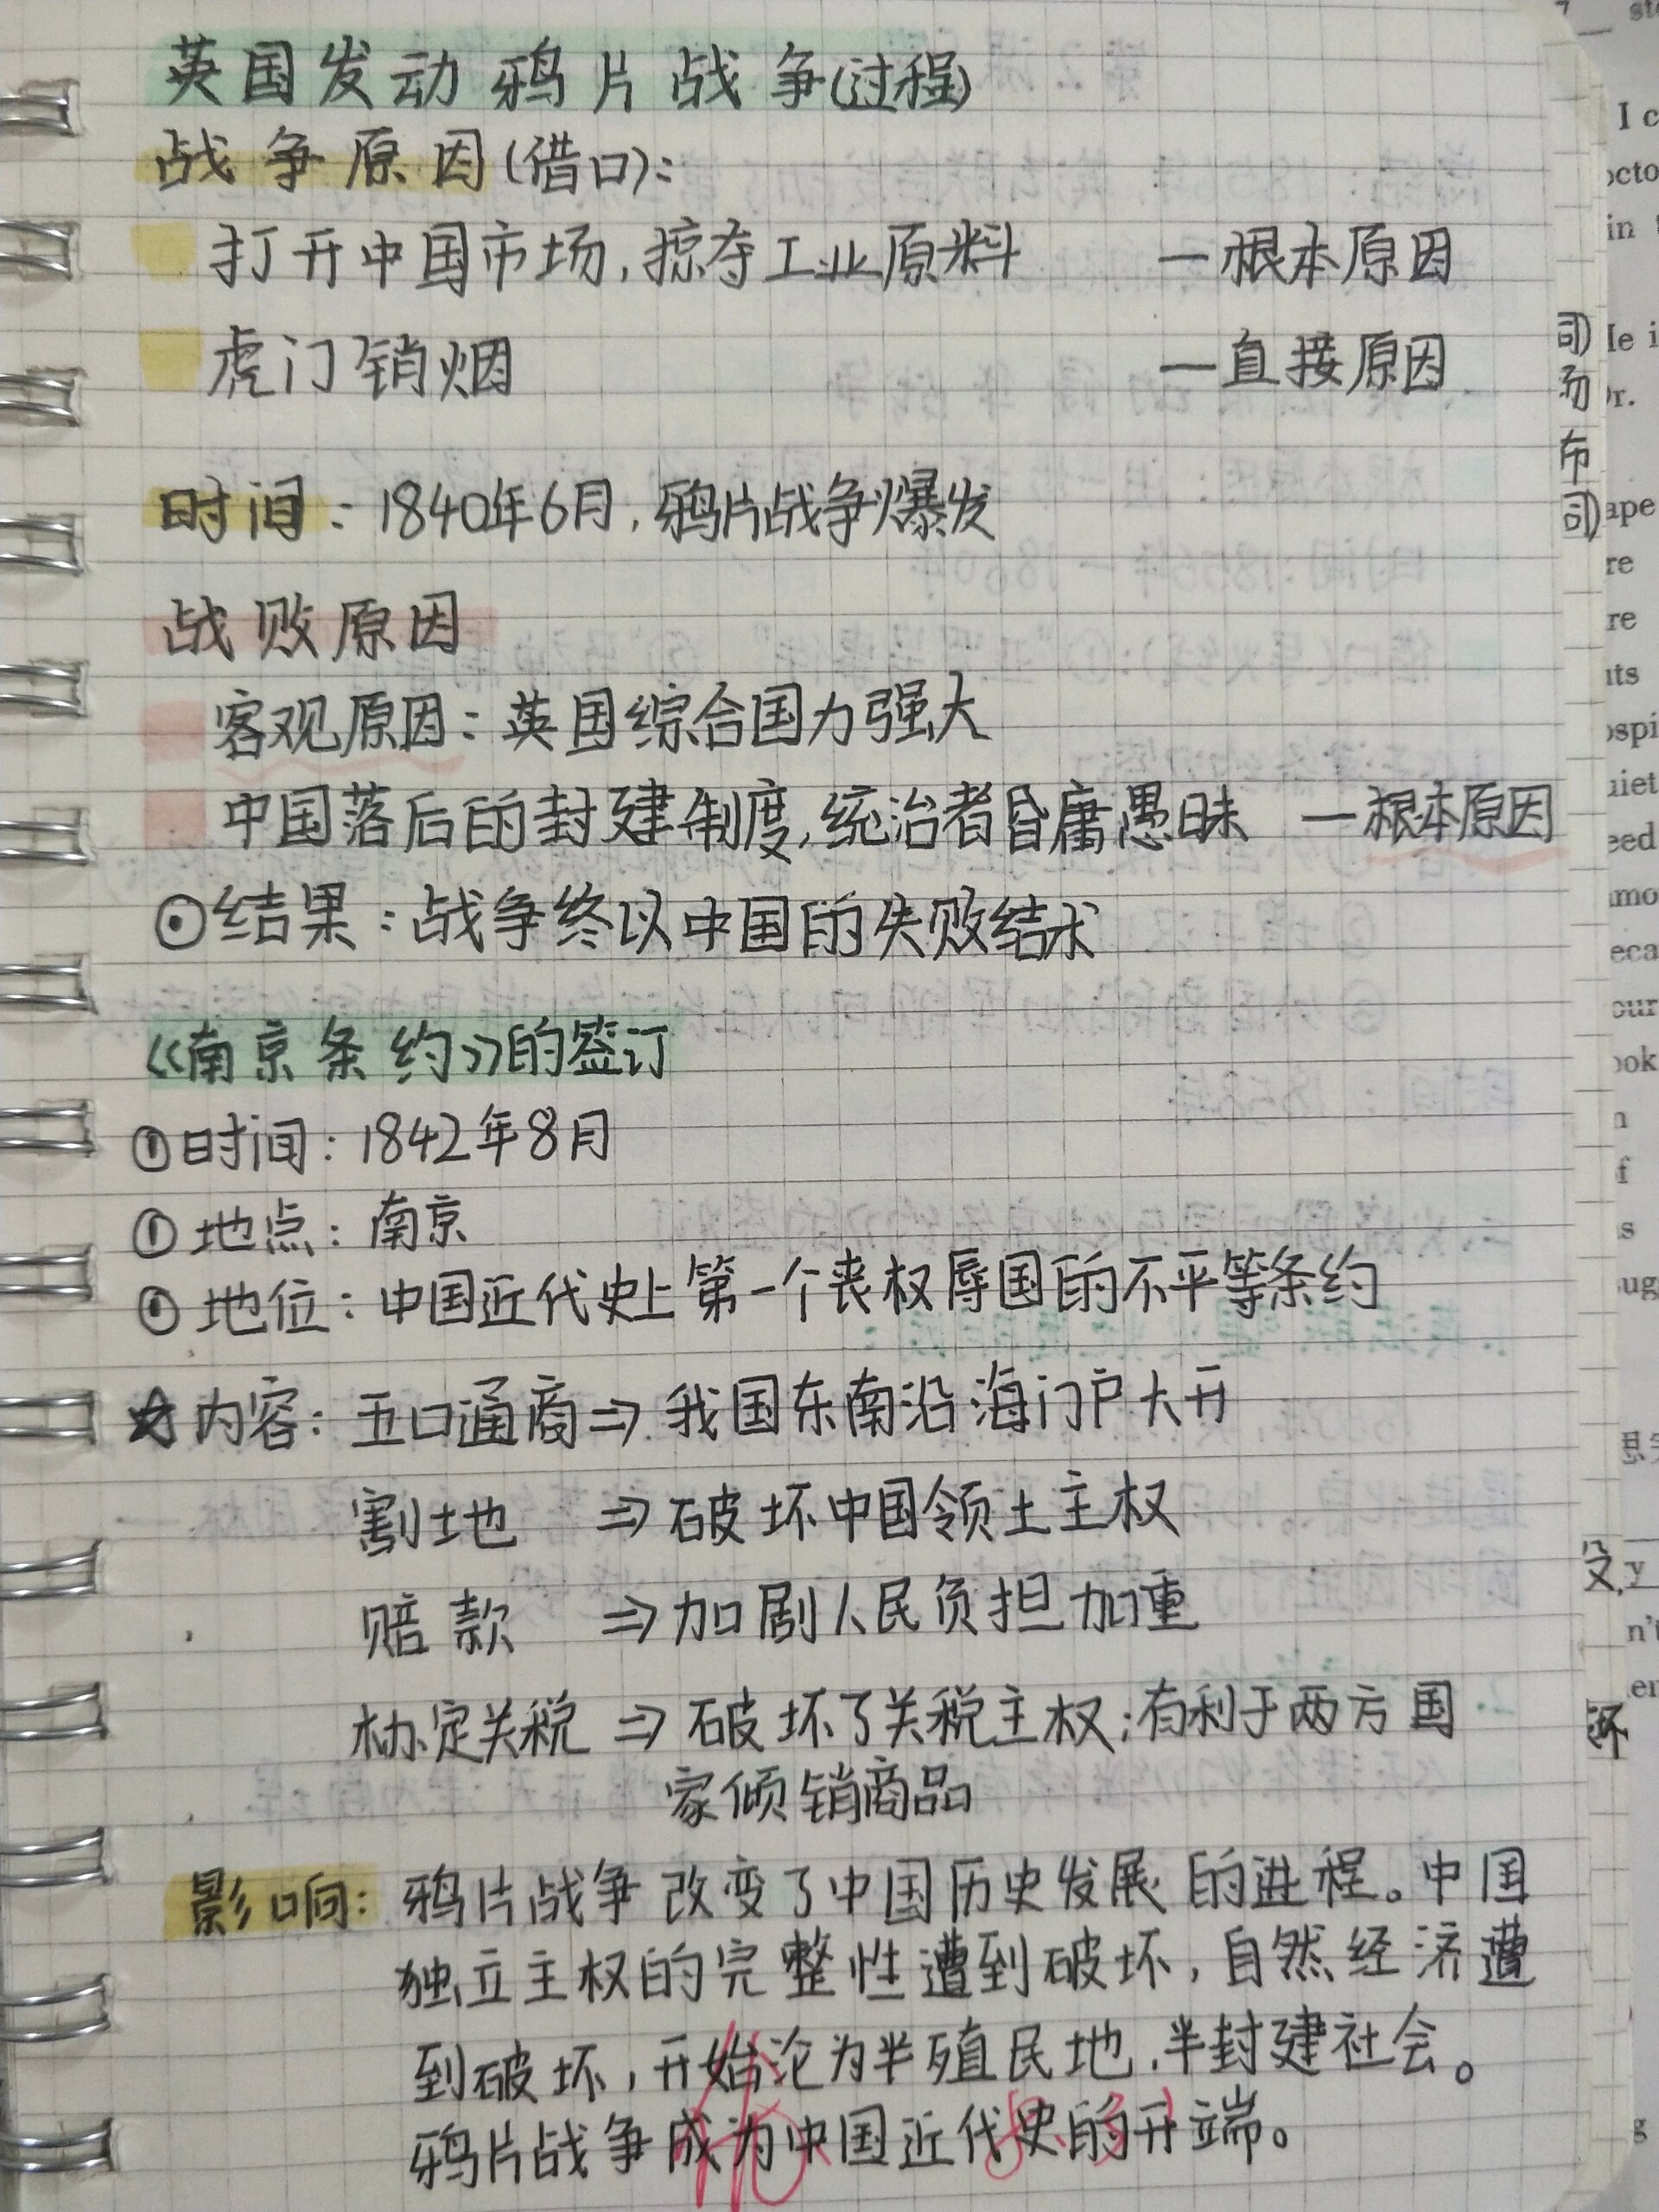 英国发动鸦片战争(过程)
战争原因(借口):
打开中国市场,掠夺工业原料 —根本原因
虎门销烟 —直接原因
时间:1840年6月,鸦片战争爆发
战败原因
客观原因:英国综合国力强大
中国落后的封建制度,统治者昏庸愚昧 —根本原因
⊙结果:战争终以中国的失败结术
《南京条约》的签订
①时间:1842年8月
①地点:南京
①地位:中国近代史上第一个丧权辱国的不平等条约
☆内容:五口通商⇒我国东南沿海门户大开
割地 ⇒破坏中国领土主权
赔款 ⇒加剧人民负担加重
协定关税⇒破坏了关税主权;有利于两方国
家倾销商品
影响:鸦片战争改变了中国历史发展的进程。中国
独立主权的完整性遭到破坏,自然经济遭
到破坏,开始沦为半殖民地.半封建社会。
鸦片战争成为中国近代史的开端。